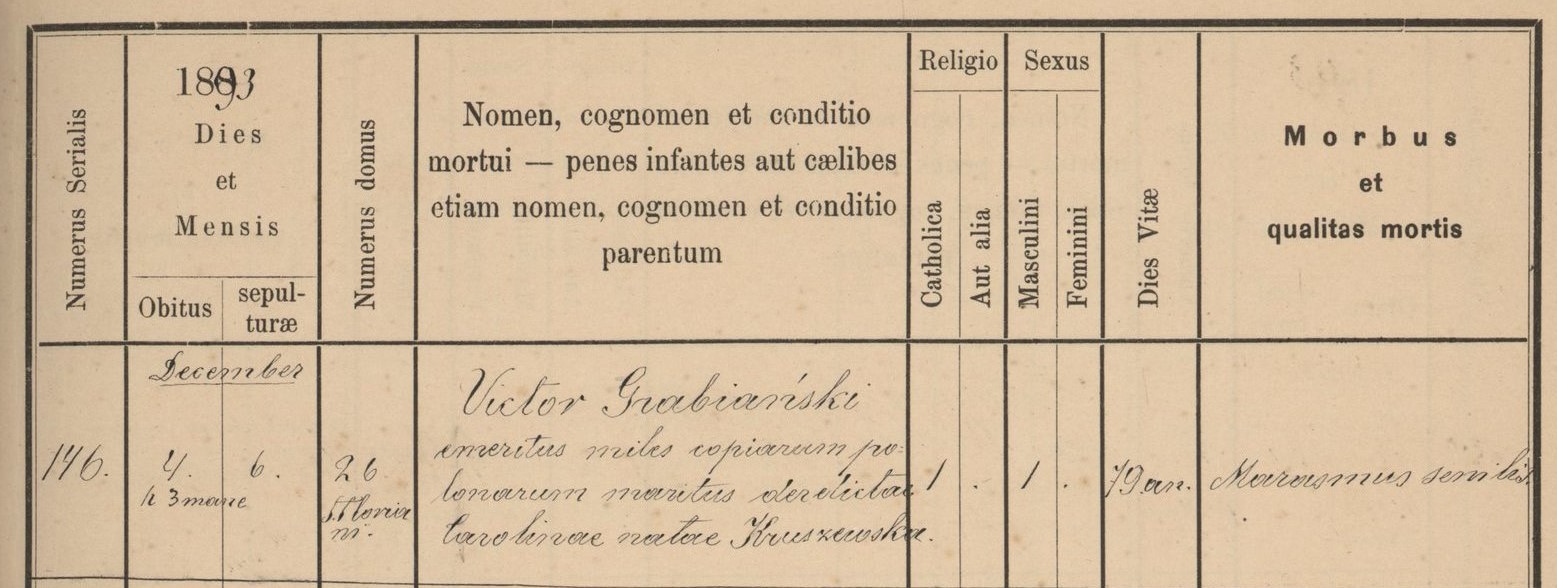 Numerus Serialis
1893
Dies
et
Mensis
Obitus
sepul-
turæ
Numerus domus
Nomen, cognomen et conditio
mortui — penes infantes aut cælibes
etiam nomen, cognomen et conditio
parentum
Religio
Catholica
Aut alia
Sexus
Masculini
Feminini
Dies Vitæ
Morbus
et
qualitas mortis
December
146.
4.
h 3 mane
6.
26
S. Floria
ni.
Victor Grabiański
emeritus miles copiarum po-
lonarum maritus derelictae
Carolinae natae Kruszewska.
1
.
1
.
79 an.
Marasmus senilis.